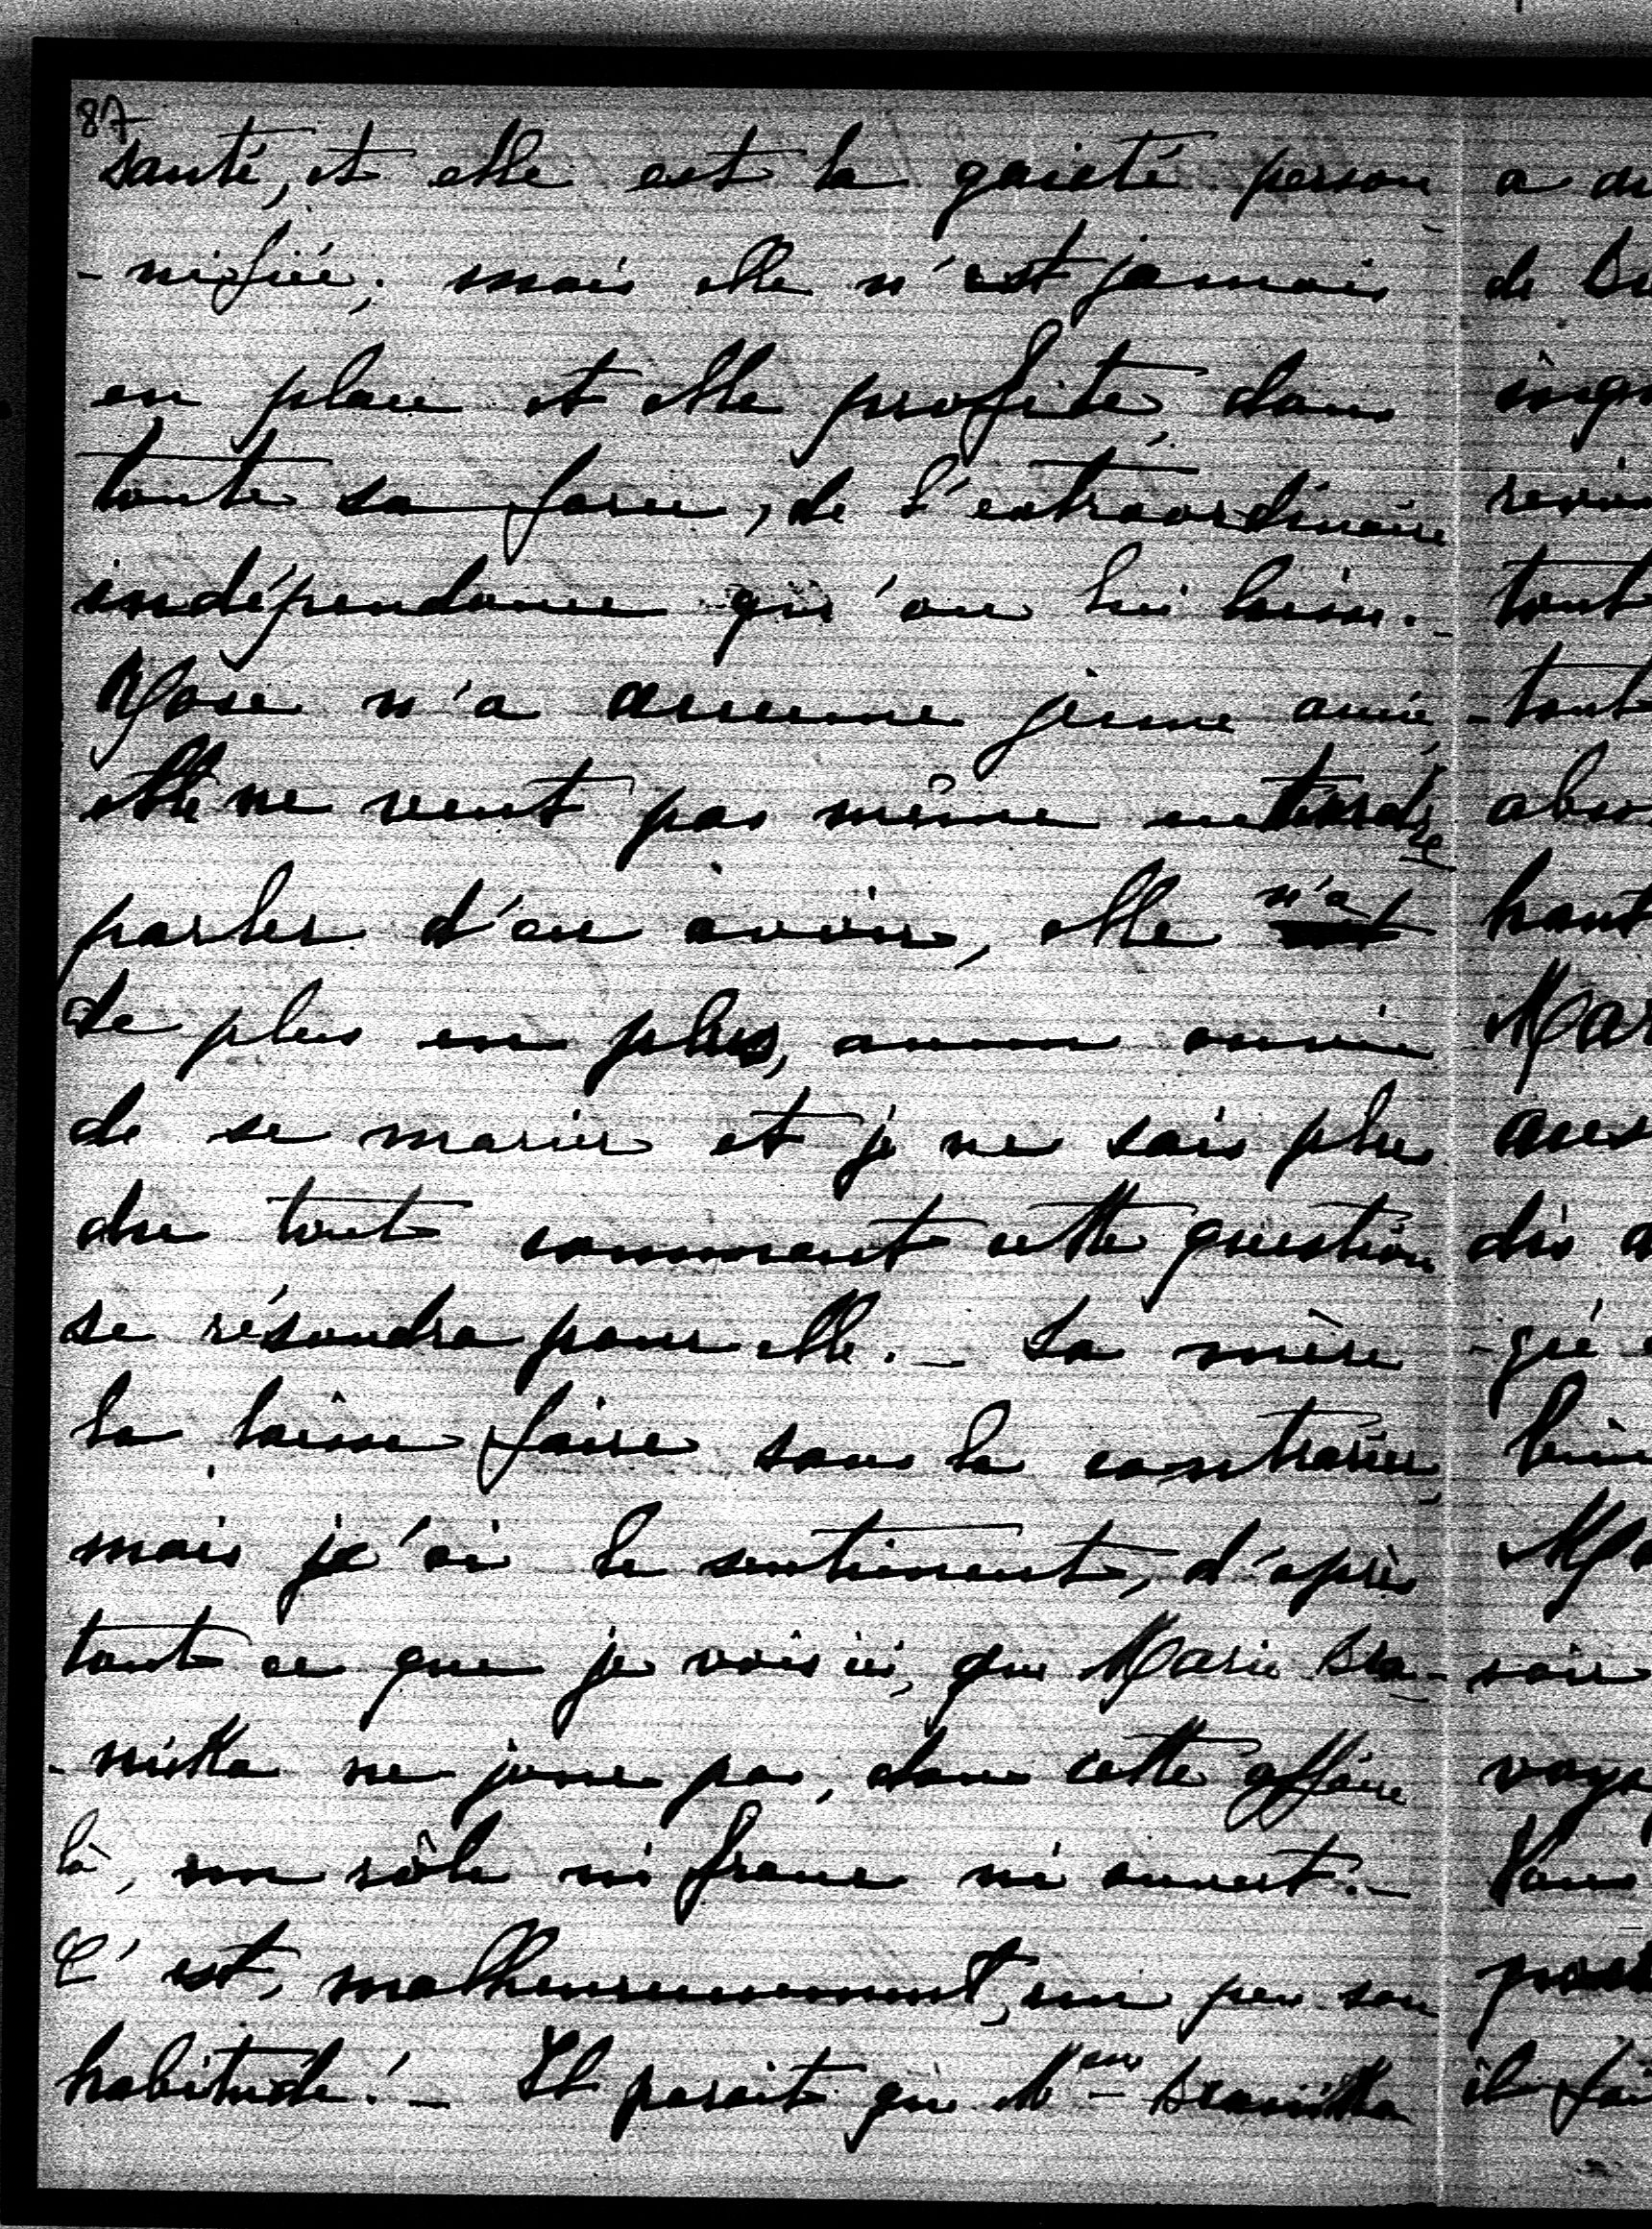 87
santé, et elle est la gaieté person-
-nifiée; mais elle n'est jamais
en place et elle profite, dans
toute sa force, de l'extraordinaire
indépendance qu'on lui laisse._
Rose n'a aucune jeune amie,
elle ne veut pas même entendre
parler d'en avoir, elle n'a
de plus en plus, aucun envie
de se marier et je ne sais plus
du tout comment cette question
se résoudra pour elle._ Sa mère
la laisse faire sans la contrarier,
mais j'ai le sentiment, d'après
tout ce que je vois ici, que Marie Bra-
-nička ne joue pas, dans cette affaire
là, un rôle ni franc ni ouvert._
C'est, malheureusement, un peu son
habitude!_ Il parait que Mme Branička
a
de
tout
tout
haut
dis
soir